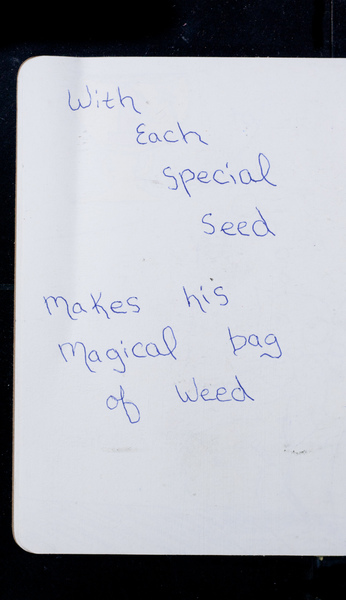 With
Each
Special
Seed
makes his
magical bag
of weed